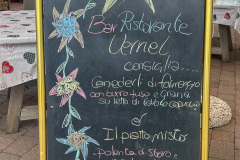 Bar Ristorante
Vernel
consiglia...
Canederli di formaggio
con burro fuso e grana
su letto di cavolo cappuccio
e
Il piatto misto
polenta di Storo